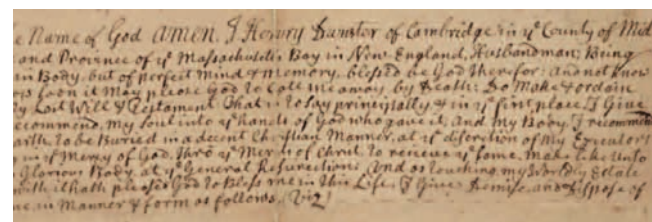 e Name of God Amen. I Henry Dunster of Cambridge in yᵉ County of Mid
and Province of yᵉ Massachusetts Bay in New England, Husbandman; Being
in Body, but of perfect Mind & Memory, blessed be God therefor: and not know
soon it May please God to Call me away by Death: Do Make & ordain
y Last Will & Testament That is to say principally & in yᵉ first place, I Give
ecommend, my Soul into yᵉ hands of God who gave it, and My Body I recommend
arth, to be Buried in a decent Christian Manner, at yᵉ discretion of My Executors
in yᵉ Mercy of God, thrô yᵉ Merits of Christ to receive yᵉ same, made like unto
Glorious Body, at yᵉ General Resurrection; And as touching my Worldly Estate
with it hath pleased God to Bless me in this Life, I Give, Demise, and dispose of
me in Manner & form as follows, (Viz)